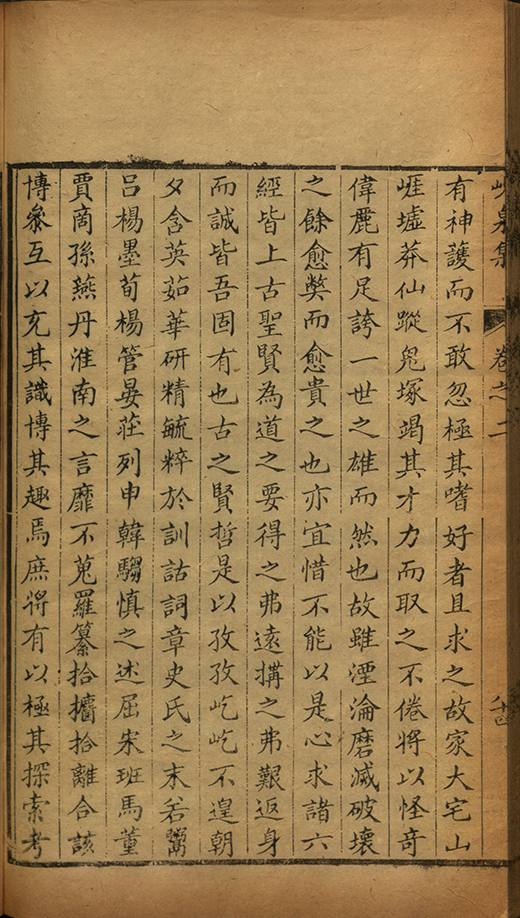 峴泉集 卷之二
有神護而不敢忽極其嗜好者且求之故家大宅山
崕墟莽仙蹤鬼塚竭其才力而取之不倦將以怪竒
偉麗有足誇一世之雄而然也故雖湮淪磨滅破壞
之餘愈獘而愈貴之也亦宜惜不能以是心求諸六
經皆上古聖賢為道之要得之弗遠搆之弗艱返身
而誠皆吾固有也古之賢哲是以孜孜屹屹不遑朝
夕含英茹華研精毓粹於訓詁詞章史氏之末若鬻
吕楊墨荀楊管晏莊列申韓騶慎之述屈宋班馬董
賈啇孫燕丹淮南之言靡不蒐羅纂拾擿拾離合該
博叅互以充其識博其趣焉庶將有以極其探索考